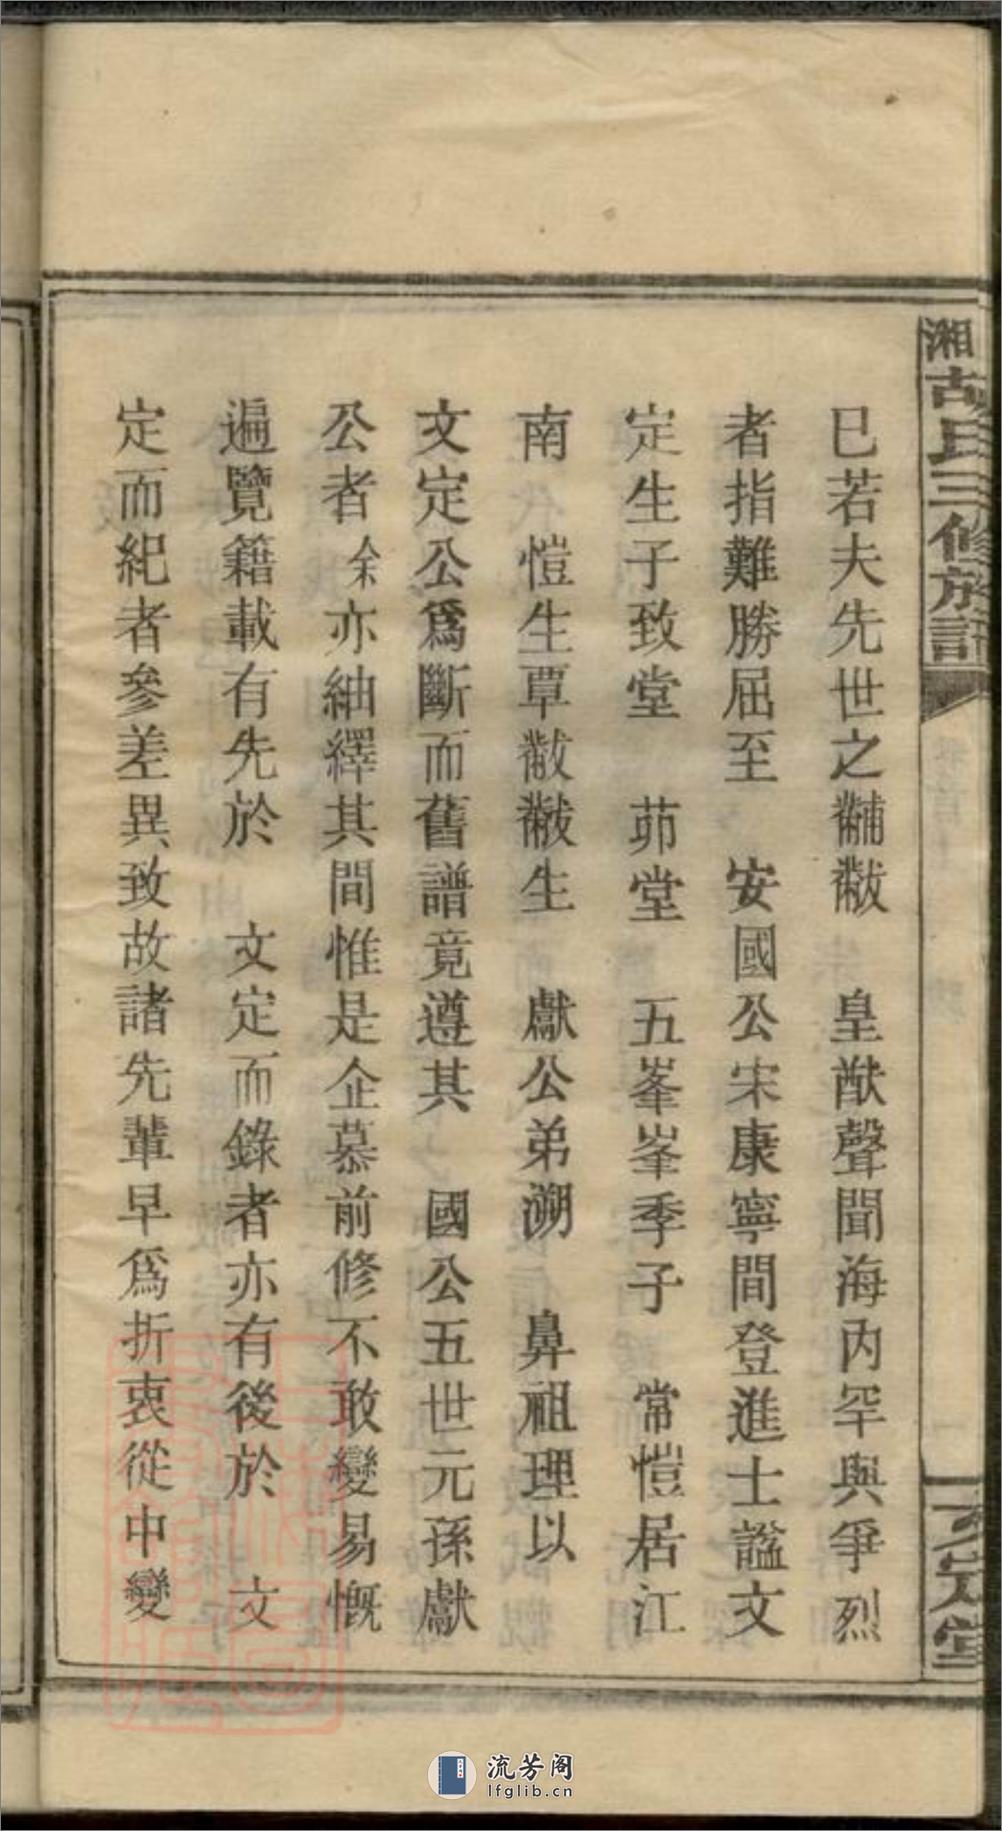 湘胡氏三修族譜
文定堂
巳若夫先世之黼黻　皇猷聲聞海內罕與爭烈
者指難勝屈至　安國公宋康寧間登進士謚文
定生子致堂　茆堂　五峯峯季子　常愷居江
南　愷生覃黻黻生　獻公弟溯　鼻祖理以
文定公爲斷而舊譜竟遵其　國公五世元孫獻
公者余亦紬繹其間惟是企慕前修不敢變易慨
遍覽籍載有先於　文定而錄者亦有後於　文
定而紀者參差異致故諸先輩早爲折衷從中變
流芳阁
lfglib.cn